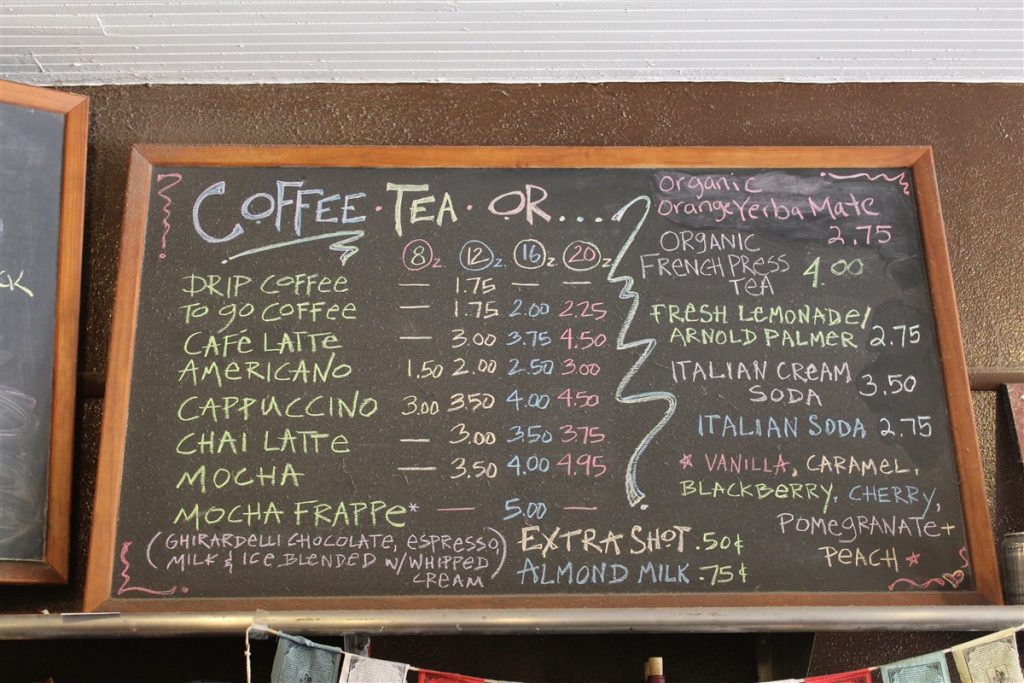 COFFEE · TEA · OR....
8z 12z 16z 20z
DRIP COFFEE — 1.75 — —
TO GO COFFEE — 1.75 2.00 2.25
CAFÉ LATTE — 3.00 3.75 4.50
AMERICANO 1.50 2.00 2.50 3.00
CAPPUCCINO 3.00 3.50 4.00 4.50
CHAI LATTE — 3.00 3.50 3.75
MOCHA — 3.50 4.00 4.95
MOCHA FRAPPE* — 5.00 —
(GHIRARDELLI CHOCOLATE, ESPRESSO,
MILK & ICE BLENDED W/WHIPPED
CREAM)
EXTRA SHOT .50¢
ALMOND MILK .75¢
Organic
Orange Yerba Mate
2.75
ORGANIC
FRENCH PRESS
TEA 4.00
FRESH LEMONADE/
ARNOLD PALMER 2.75
ITALIAN CREAM
SODA 3.50
ITALIAN SODA 2.75
* VANILLA, CARAMEL,
BLACKBERRY, CHERRY,
POMEGRANATE +
PEACH *